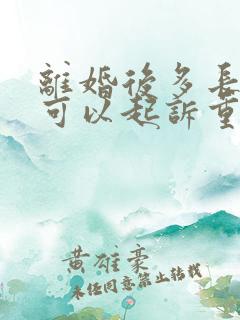 離婚後多長
可以起訴重
黄雄豪
未任同意禁止转载